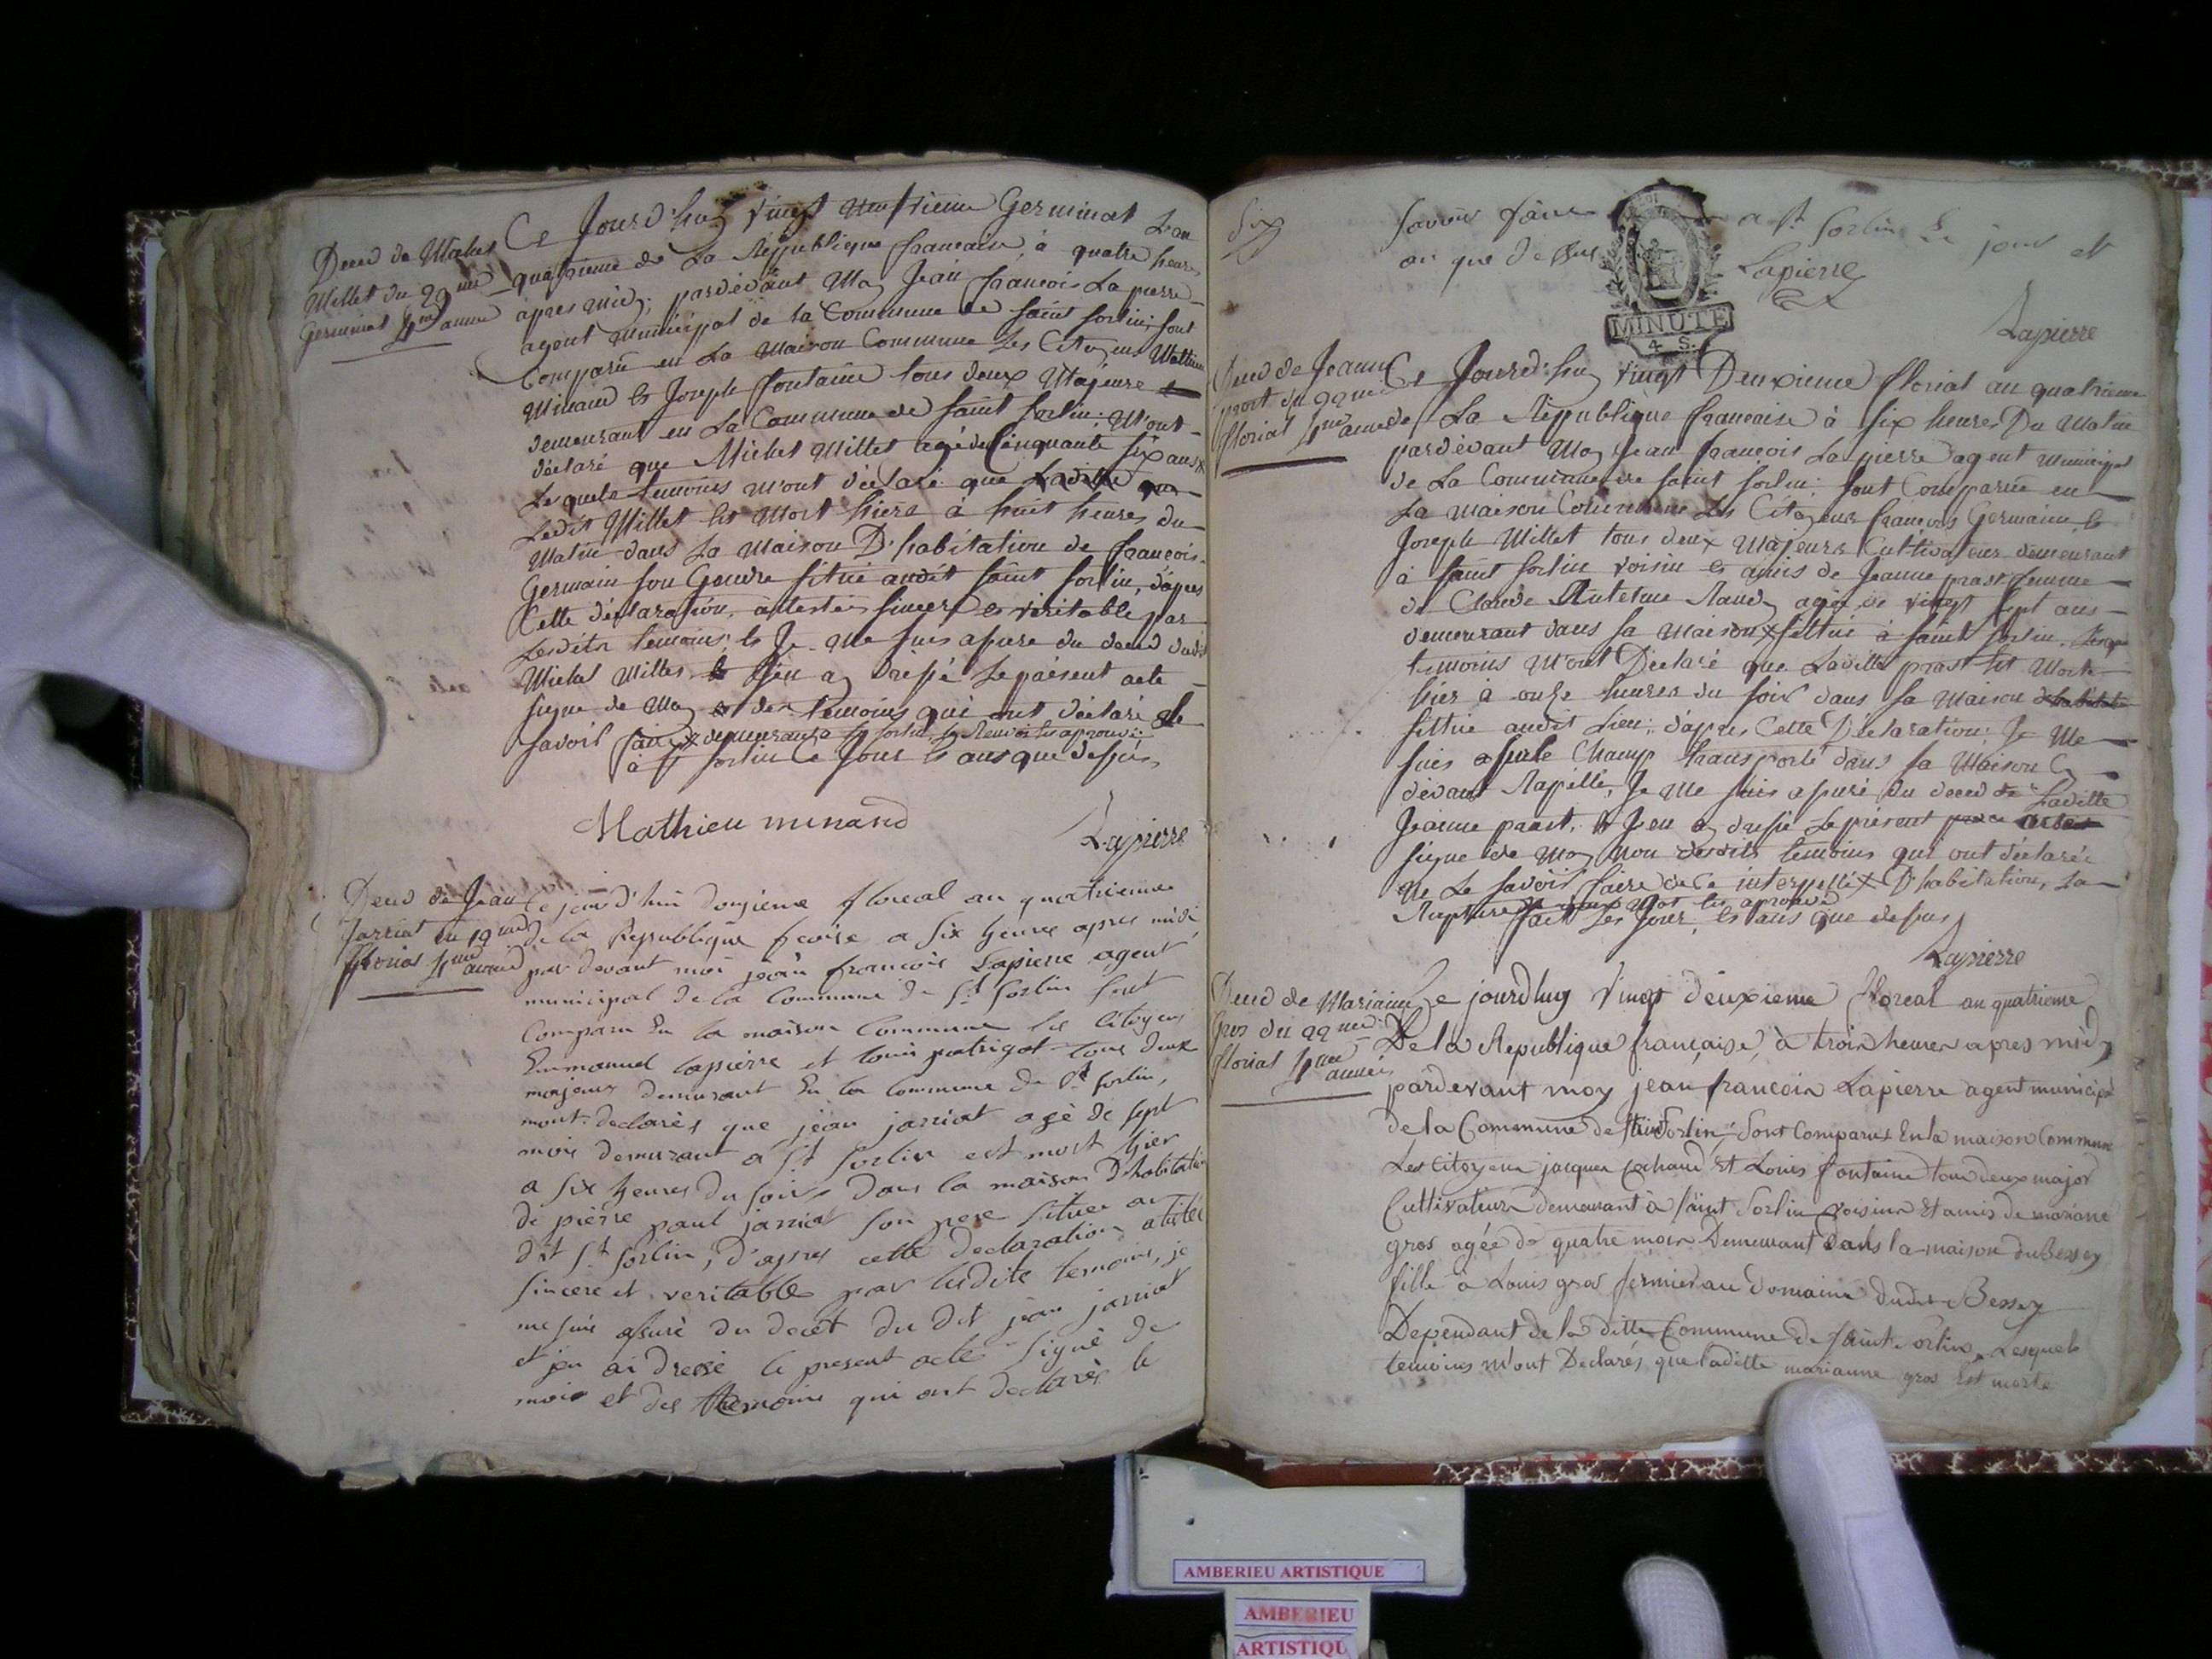 Deced de Michel
Millet du 29me
Germinal 4me année
Ce Jourd'huy vingt neuvieme Germinal Lan
quatrieme de La République francaise, à quatre heures
apres midy; pardevant Moy Jean francois Lapierre
agent Municipal de la Commune de saint sorlin; sont
Comparu en La Maison Commune Les Citoyens Mathieu
Minand & Joseph fontaine tous deux Majeurs
demeurant en La Commune de saint sorlin; M'ont
déclaré que Michel Millet agé de Cinquante six ans
Lesquels temoins m'ont déclaré que Laditte que
Ledit Millet est Mort hiere à huit heures du
Matin dans La Maison D'habitation de francois
Germain son Gendre situé audit saint sorlin, dapres
Cette déclaration, attestés sincere & véritable par
Lesdits temoins; & Je me suis assure du deced dudit
Michel Millet, & J'en ay dressé Le présent acte
signe de Moy et des temoins qui ont déclaré le
savoir faire x demeurant a St sorlin, le Renvoi est approuvé
à St sorlin Ce Jour & ans que dessus
Mathieu minand
Lapierre
Deced de Jean
Jarriat du 12me
florial 4me année
Ce jourd'hui douzieme floreal an quatrieme
de la République fcaise a six heures apres midi
par devant moi jean francois Lapierre agent
municipal de la Commune de St Sorlin sont
Comparu En la maison Commune les Citoyens
Emmanuel Lapierre et louis patrigot tous deux
majeurs demurant En la commune de St sorlin,
mont declarés que jean jarriat agé de sept
mois demurant a St sorlin est mort hier
a six heures du soir dans la maison D'habitation
de pierre paul jarriat son pere situee au
dit St sorlin, d'apres cette declaration atestée
sincere et veritable par lesdits temoins, je
me suis assuré du decet du dit jean jarriat
et jen ai dressé le present acte signé de
moi et des themoins qui ont declarés le
six
savoir faire a St Sorlin Le jour et
an que dessus
Lapierre
MINUTE
4. S.
Lapierre
Deced de Jeanne
prost du 22me
florial 4me année
Ce Jourd'huy vingt Deuxieme florial an quatrieme
de La République francaise à six heures Du Matin
pardevant Moy Jean francois Lapierre agent Municipal
de La Commune de saint sorlin; sont Comparu en
La maison Commune Les Citoyens francois Germain &
Joseph Millet tous deux Majeurs Cultivateurs demeurant
à saint sorlin voisin & amis de Jeanne prost femme
de Claude Antetme Naudy agée de vingt sept ans
demeurant dans sa maison x sittué à saint sorlin. Lesque
temoins M'ont Déclaré que Laditte prost est Morte
hier à onze heures du soir dans sa Maison d'habitation
sittué audit Lieu; d'apres Cette Déclaration; Je Me
suis assure Champ transporté dans sa Maison Cy
devant Rapellé, Je Me suis assuré du deced de Laditte
Jeanne prost, & J'en ay dressé Le présent acte
signe de Moy Non desdits temoins qui ont déclarée
Ne Le savoir faire de Ce interpellé x D'habitation, La
Rapture de mot est aprouvé
fait Les Jour, & ans que dessus
Lapierre
Deced de Marianne
Gros du 22me
florial 4me
année
Ce jourdhuy Vingt deuxieme floreal an quatrieme
De la Republique française, à trois heures apres midy
pardevant moy jean francois Lapierre agent municipal
de la Commune de saint Sorlin sont Comparus En la maison Commune
Les Citoyens jacques cochaud Et Louis fontaine tous deux major
Cultivateurs demeurant à saint Sorlin voisins Et amis de mariane
gros agée de quatre mois Demeurant dans la maison du Bessey
fille à Louis gros fermier au Domaine dudit Bessey
Dependant de la ditte Commune de saint sorlin, Lesquels
temoins m'ont Declarés que laditte marianne gros Est morte
AMBERIEU ARTISTIQUE
AMBERIEU
ARTISTIQU